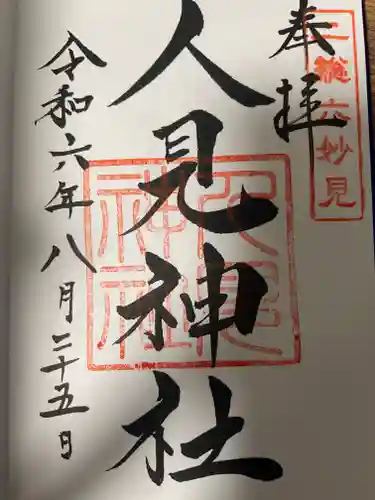 奉拝
人見神社
令和六年八月二十五日
人見神社